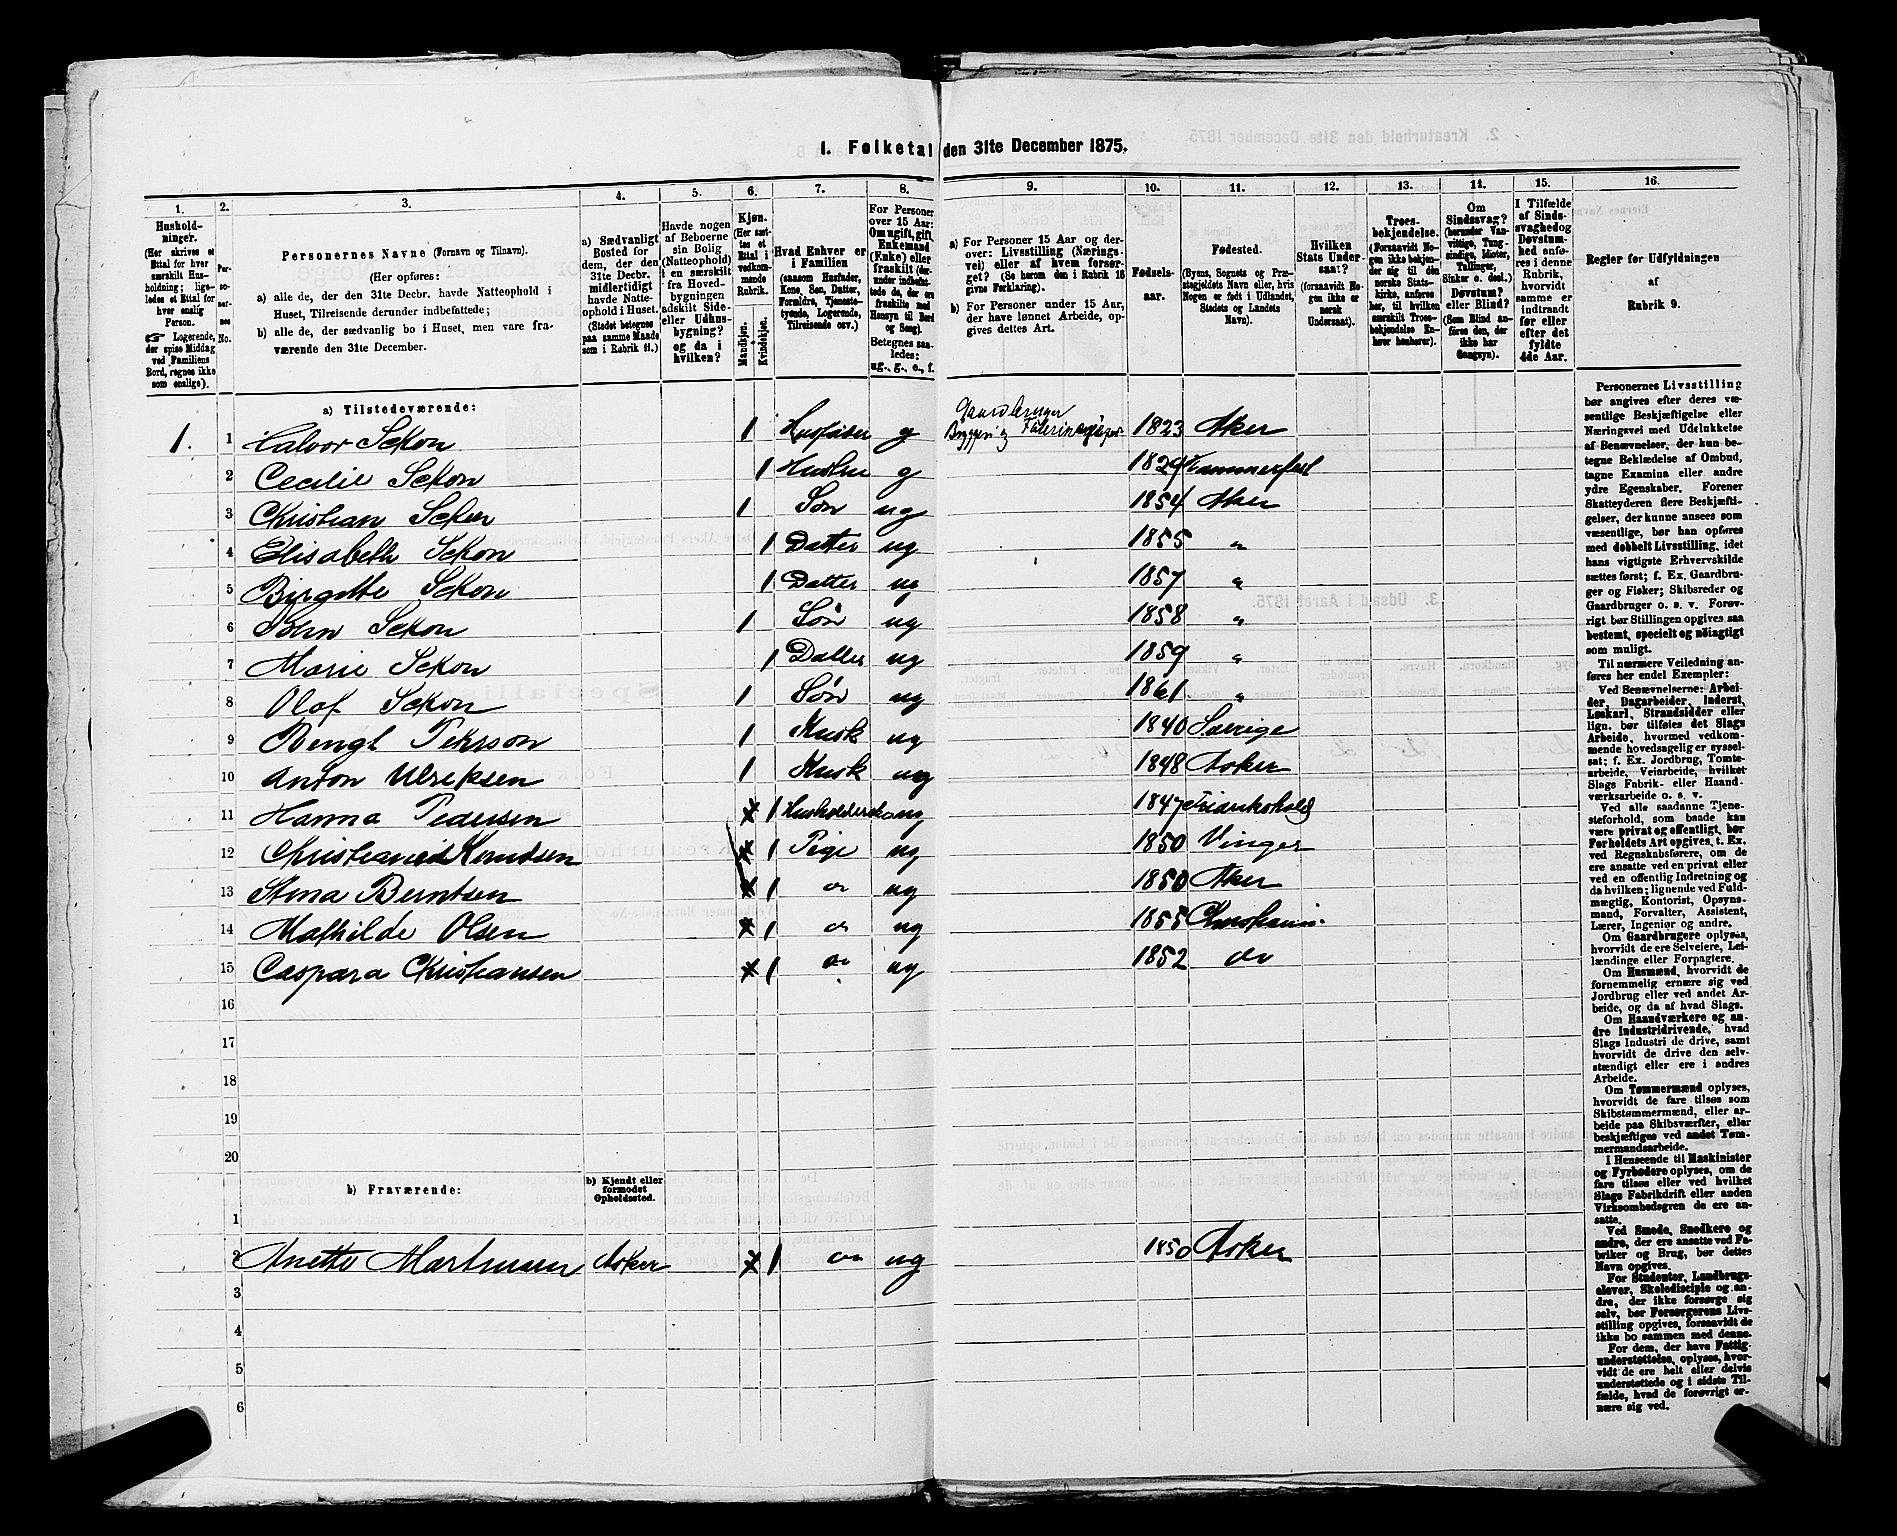 I. Folketal den 31te December 1875.
1. 2. 3. 4. 5. 6. 7. 8. 9. 10. 11. 12. 13. 14. 15. 16.
Hushold-
ninger.
(Her skrives et
Ettal for hver
særskilt Hus-
holdning; lige-
ledes et Ettal for
hver enslig
Person.
☞ Logerende,
der spise Middag
ved Familiens
Bord, regnes ikke
som enslige).
Per-
soner-
nes
No.
Personernes Navne (Fornavn og Tilnavn).
(Her opføres:
a) alle de, der den 31te Decbr. havde Natteophold i
Huset, Tilreisende derunder indbefattede;
b) alle de, der sædvanlig bo i Huset, men vare fra-
værende den 31te December.
a) Sædvanligt
Bosted for
dem, der den
31te Decbr.
midlertidigt
havde Natte-
ophold i Huset.
(Stedet betegnes
paa samme Maade
som i Rubrik 11.)
Havde nogen
af Beboerne
sin Bolig
(Natteophold)
i en særskilt
fra Hoved-
bygningen
adskilt Side-
eller Udhus-
bygning?
og da i
hvilken?
Kjøn.
(Her sæt-
tes et
Ettal i
vedkom-
mende
Rubrik.
Mandkjøn.
Kvindekjøn.
Hvad Enhver er
i Familien
(saasom Husfader,
Kone, Søn, Datter,
Forældre, Tjeneste-
tyende, Logerende,
Tilreisende osv.)
For Personer
over 15 Aar:
Om ugift, gift,
Enkemand
(Enke) eller
fraskilt (der-
under indbefat-
tede de, der ere
fraskilte med
Hensyn til Bord
og Seng).
Betegnes saa-
ledes:
ug., g., e., f.
a) For Personer 15 Aar og der-
over: Livsstilling (Nærings-
vei) eller af hvem forsør-
get? (Se herom den i Rubrik 16
givne Forklaring).
b) For Personer under 15 Aar,
der have lønnet Arbeide, op-
gives dettes Art.
Fødsels-
aar.
Fødested.
(Byens, Sognets og Præ-
stegjeldets Navn eller, hvis
Nogen er født i Udlandet,
Stedets og Landets
Navn).
Hvilken
Stats Under-
saat?
(forsaavidt No-
gen ikke er
norsk
Undersaat).
Troes-
bekjendelse.
(Forsaavidt No-
gen ikke bekjen-
der sig til den
norske Stats-
kirke, anføres
her, til hvilken
særskilt Troes-
bekjendelse En-
hver henhører).
Om
Sindssvag?
(herunder Van-
vittige, Tung-
sindige, Idioter,
Tullinger,
Sinker o. desl.)
Døvstum?
eller Blind?
(Som Blind an-
føres den, der
ikke har
Gangsyn).
I Tilfælde
af Sinds-
svaghed og
Døvstum-
hed anfø-
res i denne
Rubrik,
hvorvidt
samme er
indtraadt
før eller
efter det
fyldte
4de Aar.
Regler for Udfyldningen
af
Rubrik 9.
a) Tilstedeværende:
1. 1 Halvor Schou 1 Husfader g Gaardbruger 1823 Aker
2 Cecilie Schou 1 g 1829 Hammerfest
3 Christian Schou 1 Søn ug 1854 Aker
4 Elisabeth Schou 1 Datter ug 1855 "
5 Birgitte Schou 1 Datter ug 1857 "
6 John Schou 1 Søn ug 1858 "
7 Marie Schou 1 Datter ug 1859 "
8 Olaf Schou 1 Søn ug 1861 "
9 Bengt Pehrson 1 Kusk ug 1840 Sverige
10 Anton Ulriksen 1 Kusk ug 1848 Asker
11 Hanna Pedersen 1 ug 1847
12 Knudsen 1 Pige ug 1850 Vinger
13 Stina Berntsen 1 do ug 1850 Aker
14 Mathilde Olsen 1 do ug 1855 Christiania
15 Caspara Christiansen 1 do ug 1852 do
16
17
18
19
20
b) Fraværende:
b) Kjendt eller
formodet
Opholdssted.
1
2 Anette Martinsen Asker 1 do ug 1850 Asker
3
4
5
6
Personernes Livsstilling
bør angives efter deres væ-
sentlige Beskjæftigelse eller
Næringsvei med Udelukkelse
af Benævnelser, der kun be-
tegne Beklædelse af Ombud,
tagne Examina eller andre
ydre Egenskaber. Forener
Skatteyderen flere Beskjæfti-
gelser, der kunne ansees som
væsentlige, bør han opføres
med dobbelt Livsstilling, idet
hans vigtigste Erhvervskilde
sættes først; f. Ex. Gaardbru-
ger og Fisker; Skibsreder og
Gaardbruger o. s. v. Forøv-
rigt bør Stillingen opgives saa
bestemt, specielt og nøiagtigt
som muligt.
Til nærmere Veiledning an-
føres her endel Exempler:
Ved Benævnelserne: Arbei-
der, Dagarbeider, Inderst,
Løskarl, Strandsidder eller
lign. bør tilføies det Slags
Arbeide, hvormed vedkom-
mende hovedsagelig er syssel-
sat; f. Ex. Jordbrug, Tomte-
arbeide, Veiarbeide, hvilket
Slags Fabrik- eller Haand-
værksarbeide o. s. v.
Ved alle saadanne Tjene-
steforhold, som baade kan
være privat og offentligt, bør
Forholdets Art opgives, t. Ex.
ved Regnskabsførere, om de
ere ansatte ved en privat eller
ved en offentlig Indretning og
da hvilken; lignende ved Fuld-
mægtig, Kontorist, Opsyns-
mand, Forvalter, Assistent,
Lærer, Ingeniør og andre.
Om Gaardbrugere oplyses,
hvorvidt de ere Selveiere, Lei-
lændinge eller Forpagtere.
Om Husmænd, hvorvidt de
fornemmelig ernære sig ved
Jordbrug eller ved andet Ar-
beide, og da af hvad Slags.
Om Haandværkere og an-
dre Industridrivende, hvad
Slags Industri de drive, samt
hvorvidt de drive den selv-
stændigt eller ere i andres
Arbeide.
Om Tømmermænd oplyses,
hvorvidt de fare tilsøs som
Skibstømmermænd, eller ar-
beide paa Skibsværfter, eller
beskjæftiges ved andet Tøm-
mermandsarbeide.
I Henseende til Maskinister
og Fyrbødere oplyses, om de
fare tilsøs eller ved hvilket
Slags Fabrikdrift eller anden
Virksomhedsgren de ere an-
satte.
Ved Smede, Snedkere og
andre, der ere ansatte ved Fa-
briker og Brug, bør dettes
Navn opgives.
For Studenter, Landbrugs-
elever, Skoledisciple og an-
dre, der ikke forsørge sig
selv, bør Forsørgerens Livs-
stilling opgives, forsaavidt de
ikke bo sammen med denne.
For dem, der have Fattig-
understøttelse, oplyses, hvor-
vidt de ere helt eller delvis
understøttede og i sidste Til-
fælde, hvad de forøvrigt er-
nære sig ved.